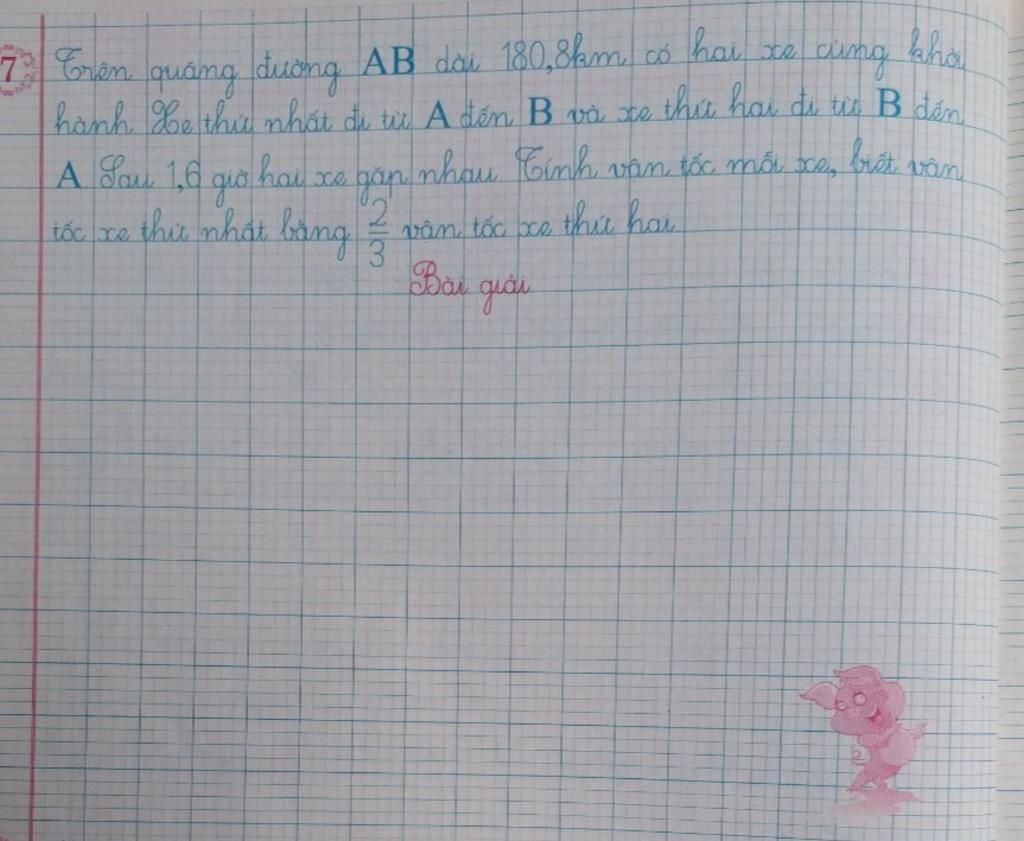 7 Trên quãng đường AB dài 180,8km có hai xe cùng khởi
hành. Xe thứ nhất đi từ A đến B và xe thứ hai đi từ B đến
A. Sau 1,6 giờ hai xe gặp nhau. Tính vận tốc mỗi xe, biết vận
tốc xe thứ nhất bằng 2/3 vận tốc xe thứ hai.
Bài giải